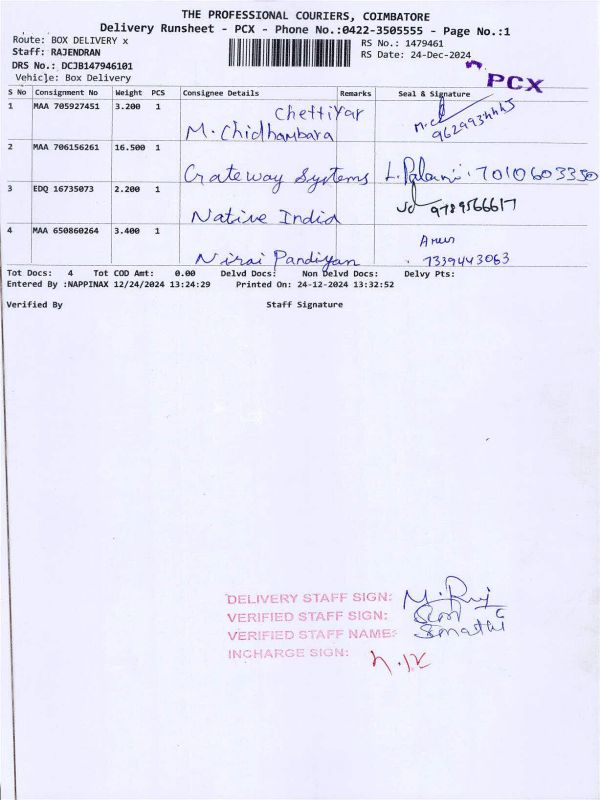 THE PROFESSIONAL COURIERS, COIMBATORE
Delivery Runsheet - PCX - Phone No.:0422-3505555 - Page No.:1
Route: BOX DELIVERY x
RS No.: 1479461
Staff: RAJENDRAN
RS Date: 24-Dec-2024
DRS No.: DCJB147946101
Vehicle: Box Delivery
PCX
S No Consignment No Weight PCS Consignee Details Remarks Seal & Signature
1 MAA 705927451 3.200 1 Chettiyar
M. Chidhambara
2 MAA 706156261 16.500 1
Gateway Systems L. Palani. 7010603350
3 EDQ 16735073 2.200 1 9789566617
Native India
4 MAA 650860264 3.400 1 Arun
Nirai Pandiyan 7339443063
Tot Docs: 4 Tot COD Amt: 0.00 Delvd Docs: Non Delvd Docs: Delvy Pts:
Entered By :NAPPINAX 12/24/2024 13:24:29 Printed On: 24-12-2024 13:32:52
Verified By Staff Signature
DELIVERY STAFF SIGN: M. Raj
VERIFIED STAFF SIGN:
VERIFIED STAFF NAME:
INCHARGE SIGN: